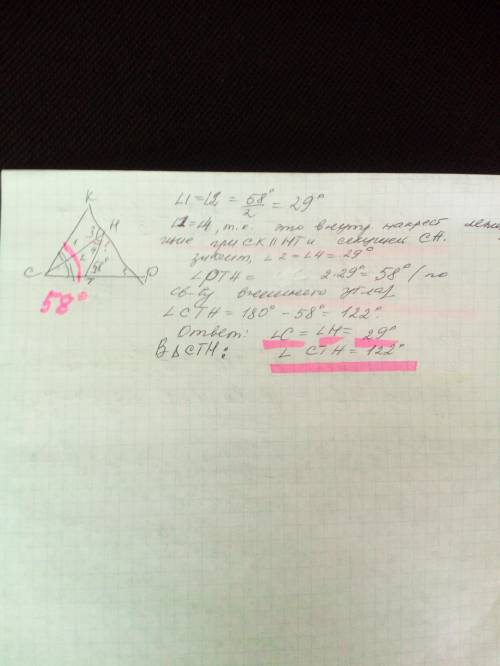 K
H
1
3
2
4
C
58°
T
P
58°
∠1=∠2 = 58°/2 = 29°
∠1=∠4, т.к. это внутр. накрест лежа-
щие при CK || HT и секущей CH.
значит, ∠2 = ∠4 = 29°
∠PTH = 2·29° = 58° (по
св-ву внешнего угла)
∠CTH = 180° - 58° = 122°.
Ответ: ∠C = ∠H = 29°
В Δ CTH: ∠ CTH = 122°